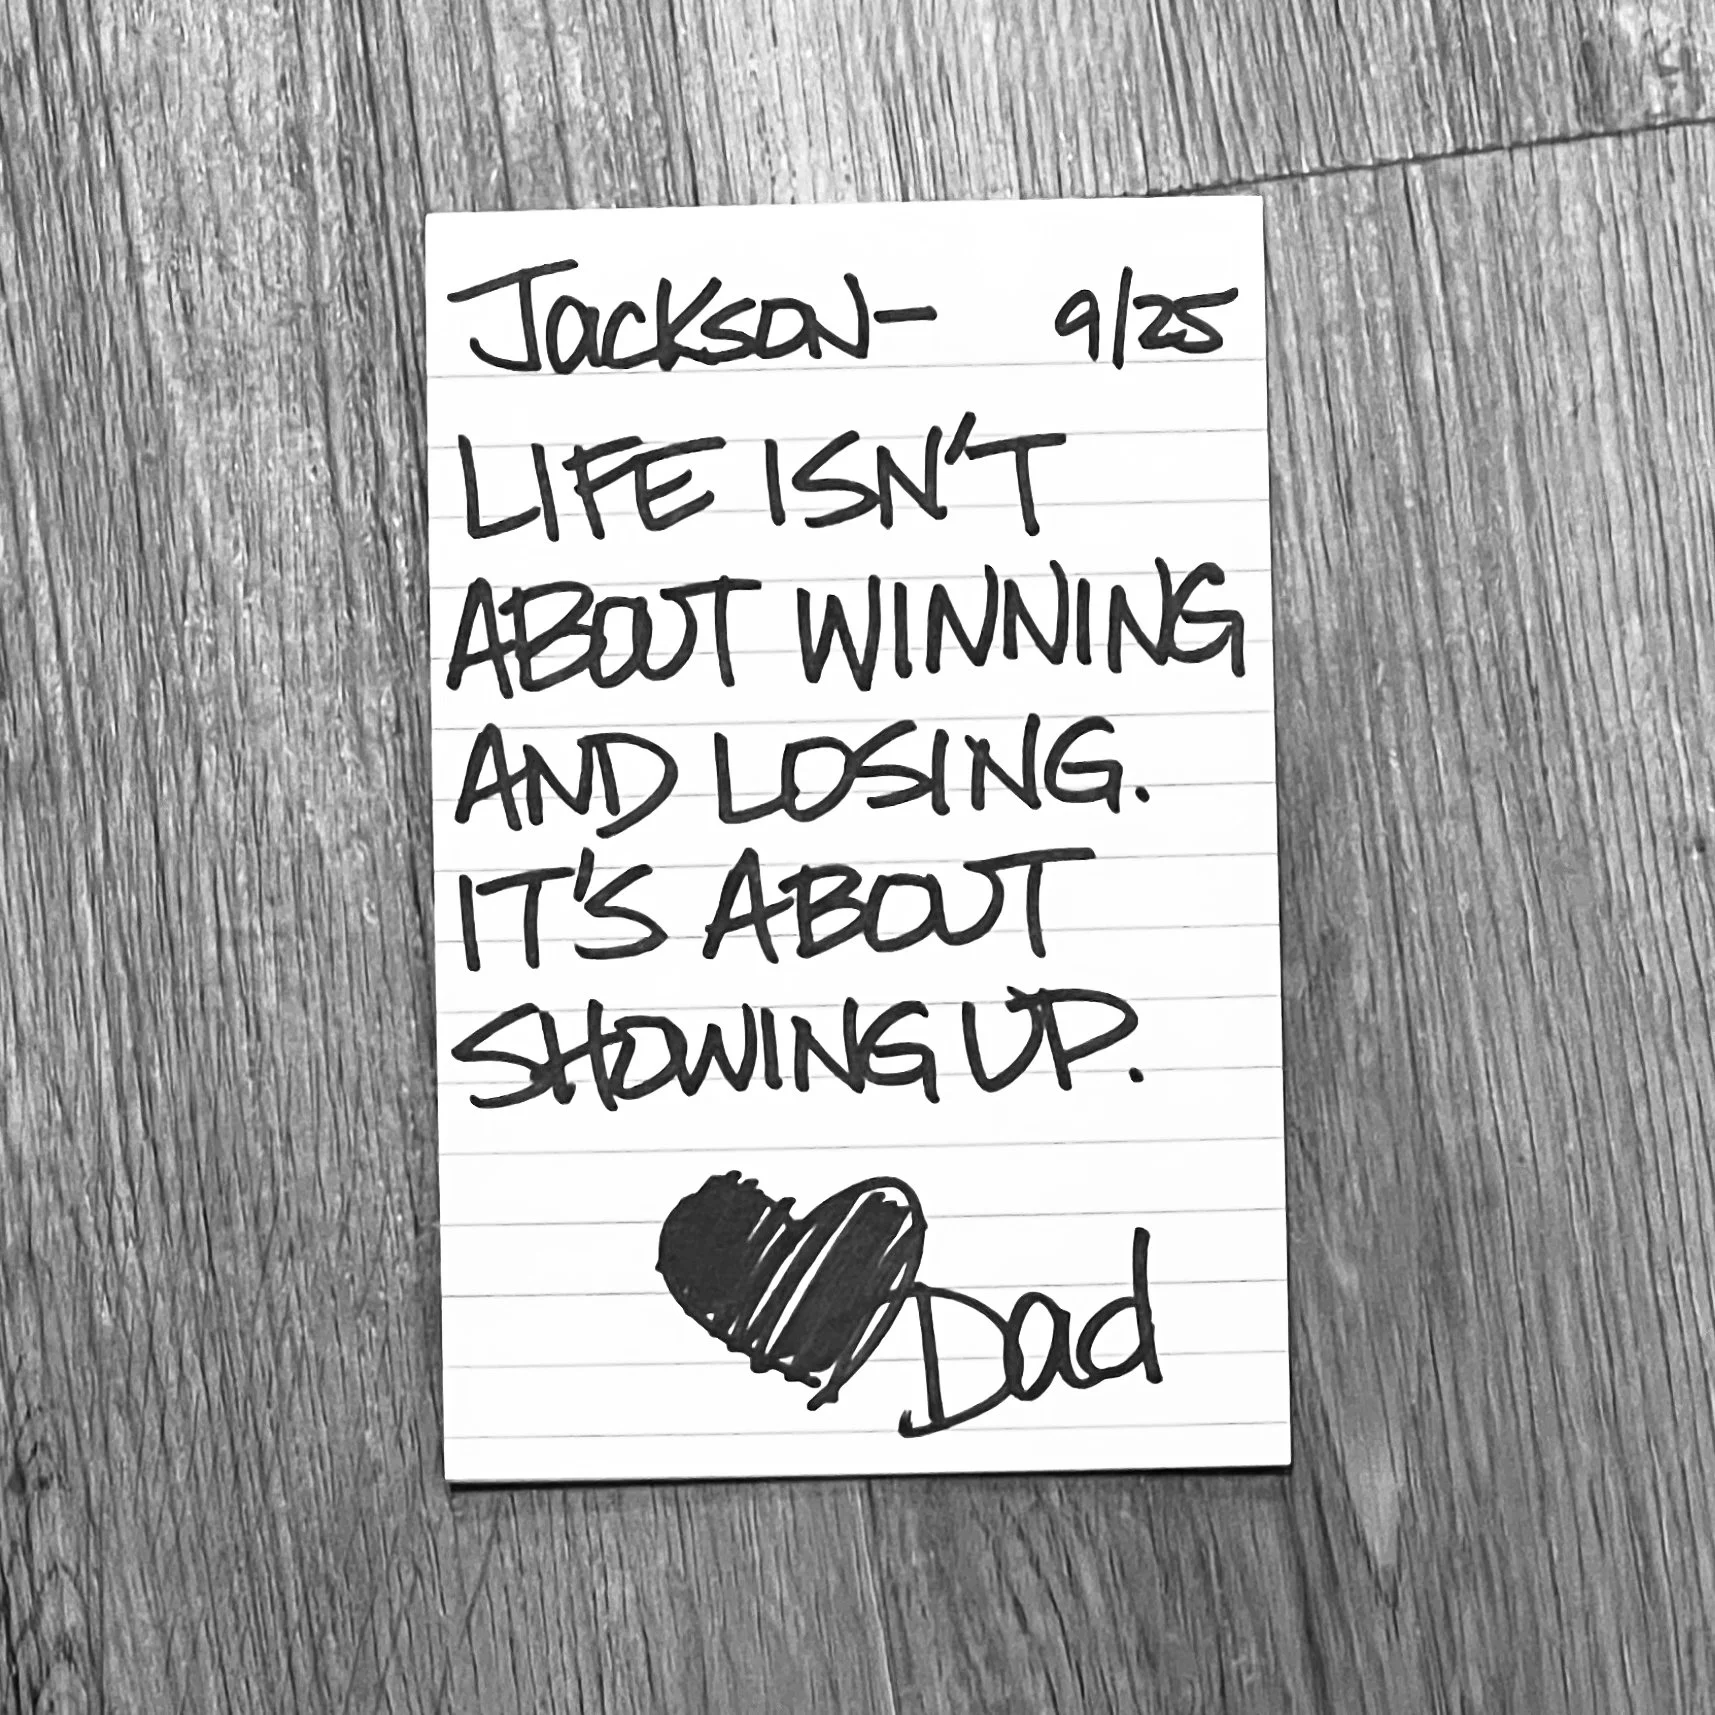 Jackson- 9/25
LIFE ISN'T
ABOUT WINNING
AND LOSING.
IT'S ABOUT
SHOWING UP.
Dad